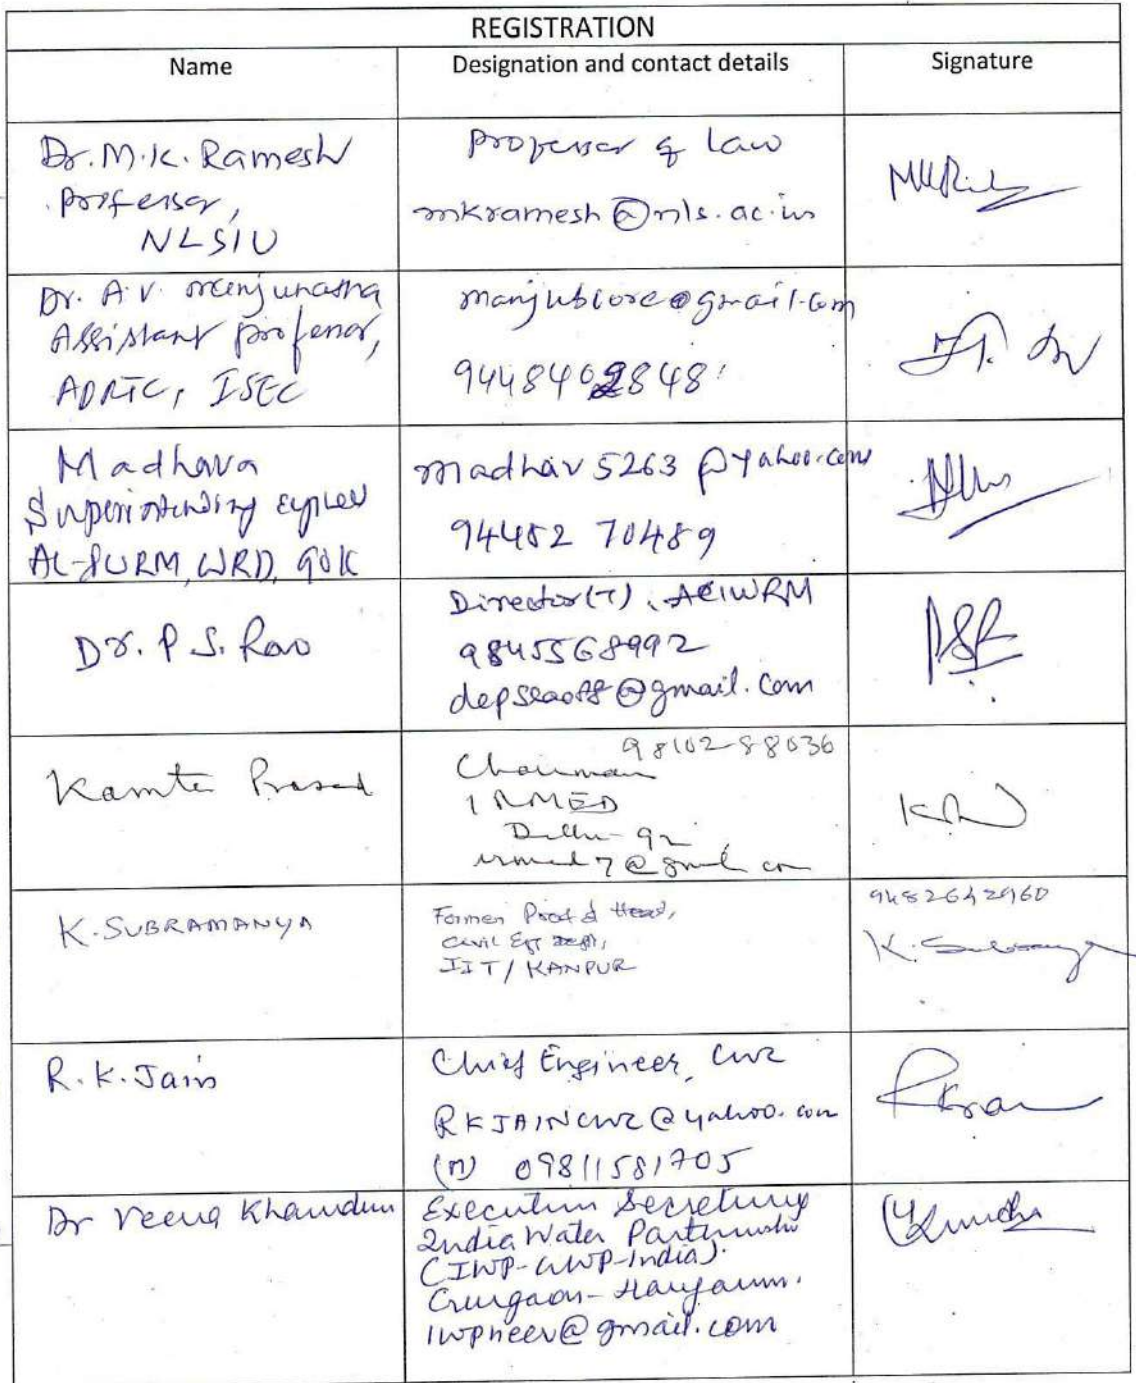 REGISTRATION
Name
Designation and contact details
Signature
Dr. M.K. Ramesh
Professor,
NLSIU
Professor of Law
mkramesh@nls.ac.in
Dr. A.V. Manjunatha
Assistant professor,
ADRTC, ISEC
manjublore@gmail.com
9448402848
Madhava
Superintending
WRD, GOK
madhav5263@yahoo.com
94482 70489
Dr. P.S. Rao
Director(T), ACIWRM
9845568992
@gmail.com
Kamta Prasad
98102-88036
Chairman
IRMED
Delhi-92
irmed7@gmail.com
K. SUBRAMANYA
Former Prof & Head,
Civil Eng Dept,
IIT/KANPUR
9482642960
R.K. Jain
Chief Engineer, CWC
RKJAINCWC@yahoo.com
(M) 09811581705
Dr Veena Khanduri
Executive Secretary
India Water Partnership
(IWP-GWP-India).
Gurgaon-Haryana.
iwpneer@gmail.com